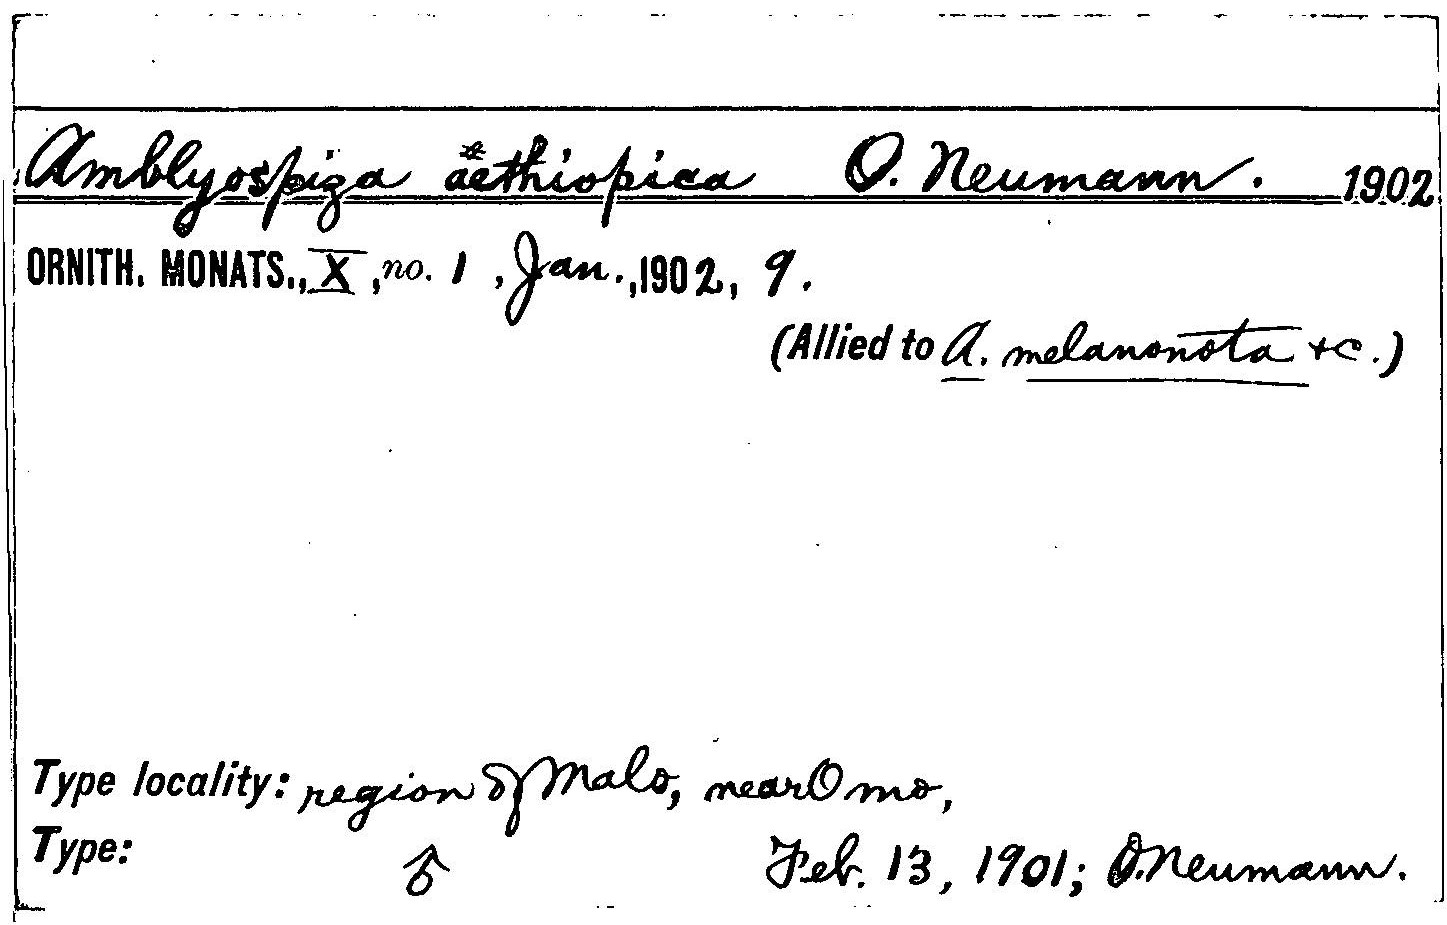 Amblyospiza aethiopica O. Neumann. 1902
ORNITH. MONATS., X, no. 1, Jan., 1902, 9.
(Allied to A. melanonota +c.)
Type locality: region of Malo, near Omo,
Type: ♂ Feb. 13, 1901; O. Neumann.